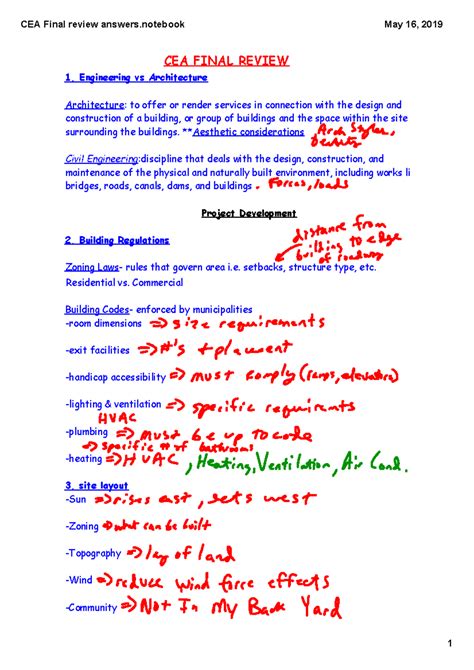 CEA Final review answers.notebook
May 16, 2019
CEA FINAL REVIEW
1. Engineering vs Architecture
Architecture: to offer or render services in connection with the design and
construction of a building, or group of buildings and the space within the site
surrounding the buildings. **Aesthetic considerations Arch Styles,
Civil Engineering:discipline that deals with the design, construction, and
maintenance of the physical and naturally built environment, including works li
bridges, roads, canals, dams, and buildings . Forces, loads
Project Development
distance from
building to edge
of roadway
2. Building Regulations
Zoning Laws- rules that govern area i.e. setbacks, structure type, etc.
Residential vs. Commercial
Building Codes- enforced by municipalities
-room dimensions => size requirements
-exit facilities => #'s + placement
-handicap accessibility => must comply (ramps, elevators)
-lighting & ventilation => specific requirments
HVAC
-plumbing => must be up to code
=> specific # of bathrooms
-heating => HVAC, Heating, Ventilation, Air Cond.
3. site layout
-Sun => rises east, sets west
-Zoning => what can be built
-Topography => lay of land
-Wind => reduce wind force effects
-Community => Not In My Back Yard
1